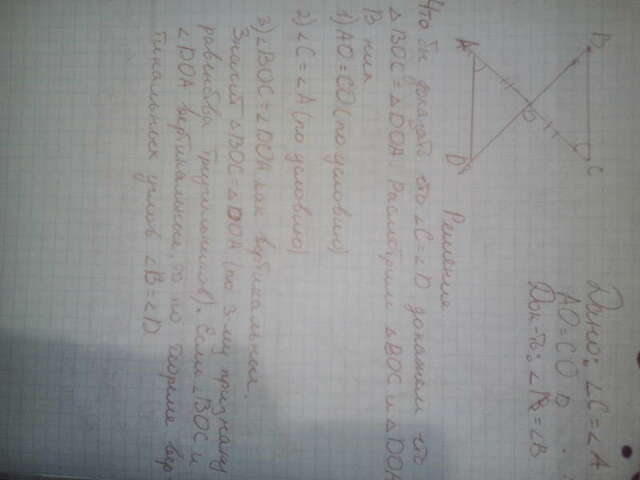 Дано: ∠C=∠A
AO=CO
Док-ть: ∠D=∠B
B
C
O
A
D
Решение
Что бы доказать что ∠C=∠D докажем что
△BOC=△DOA. Рассмотрим △BOC и △DOA
В них
1) AO=CO (по условию)
2) ∠C=∠A (по условию)
3) ∠BOC=∠DOA как вертикальные.
Значит △BOC=△DOA (по 3 му признаку
равенства треугольников). Если ∠BOC и
∠DOA вертикальные, то по теореме вер-
тикальных углов ∠B=∠D